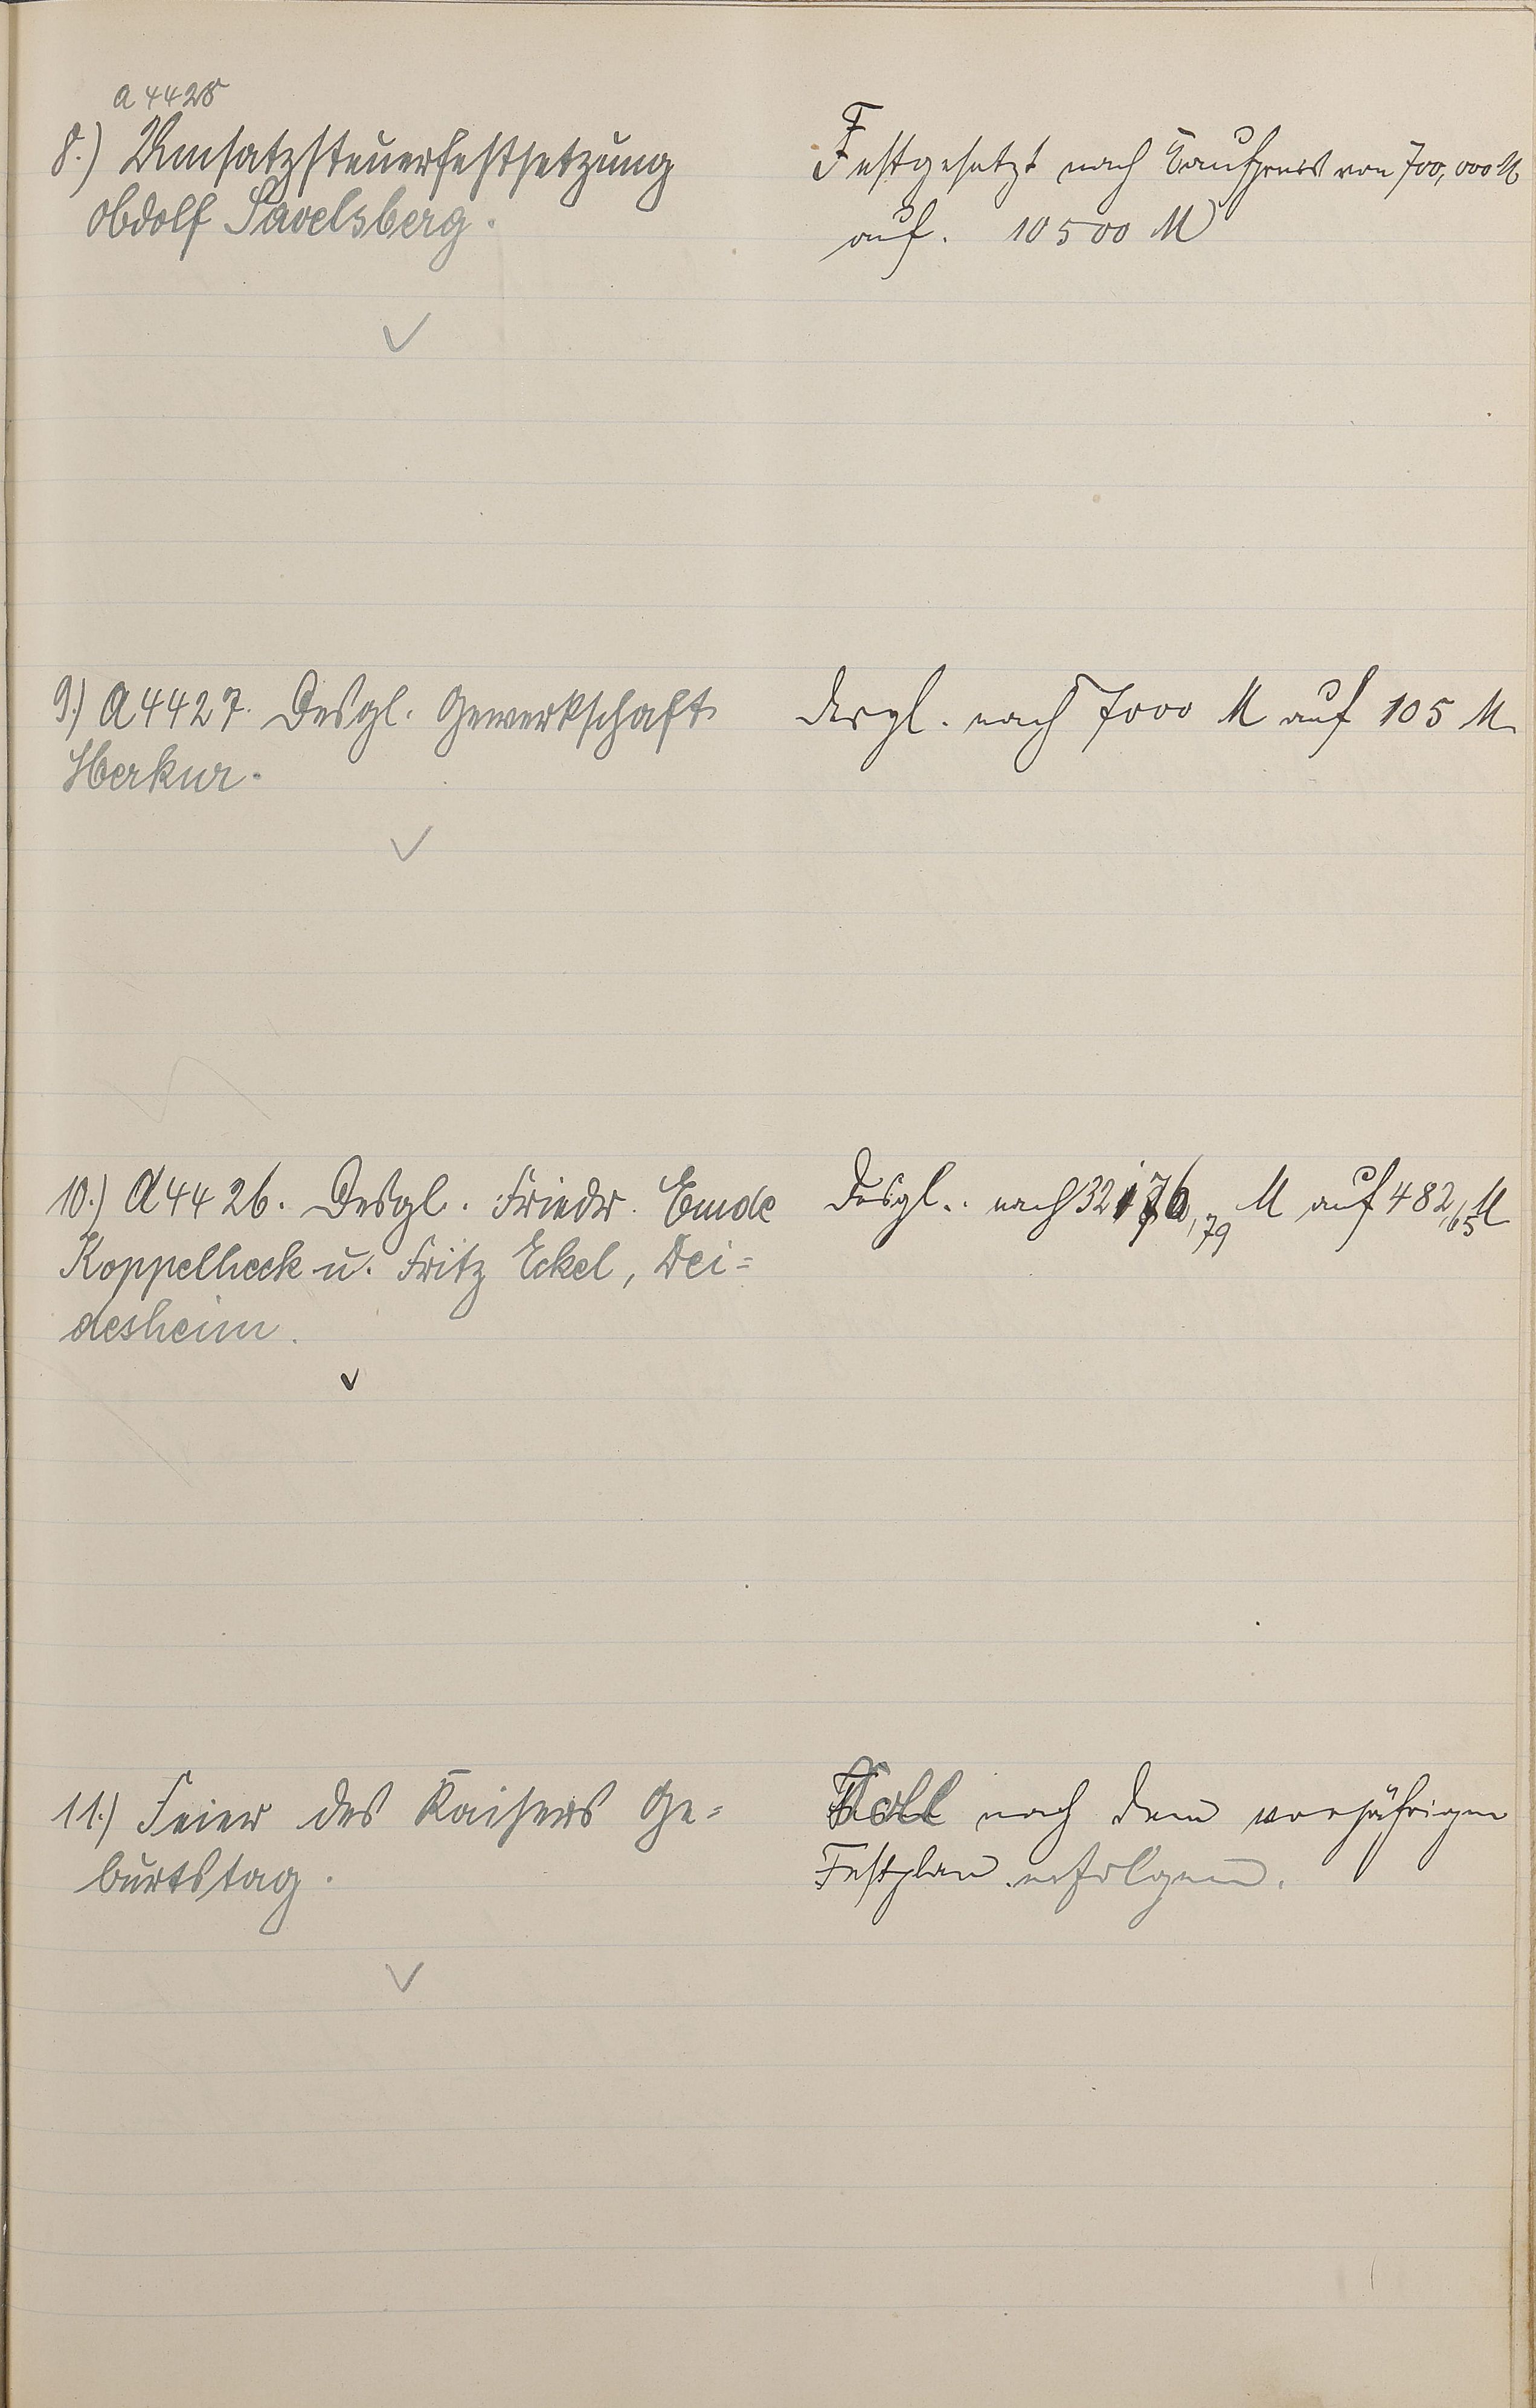 A 4425
8.) Umsatzsteuerfestsetzung
Adolf Savelsberg.
Festgesetzt nach Kaufpreis von 700,000 M
auf. 10500 M
9.) A 4427. Desgl. Gewerkschaft
Merkur.
desgl. nach 7000 M auf 105 M
10.) A 4426. Desgl. Friedr. Emde
Koppelheck u. Fritz Eckel, Dei=
desheim.
Desgl.. nach 32176,79 M auf 482,65 M
11.) Feier des Kaisers Ge=
burtstag.
Soll nach dem vorjährigen
Festplan erfolgen.